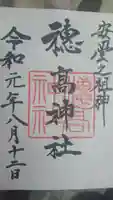 安曇之祖神
穗高神社
令和元年八月十二日